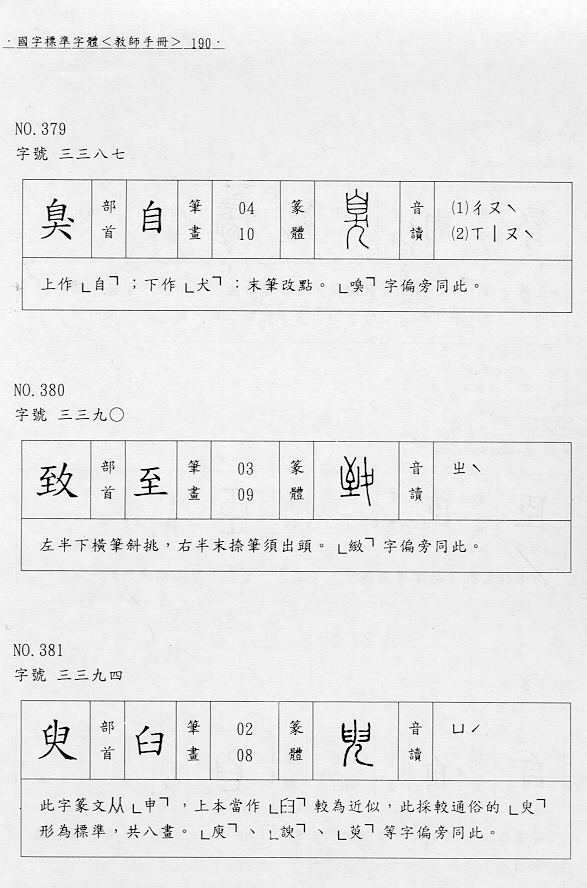 ·國字標準字體＜教師手冊＞ 190·
NO.379
字號 三三八七
臭 部首 自 筆畫 04 10 篆體 音讀 ⑴ㄔㄡˋ ⑵ㄒㄧㄡˋ
上作「自」；下作「犬」：末筆改點。「嗅」字偏旁同此。
NO.380
字號 三三九〇
致 部首 至 筆畫 03 09 篆體 音讀 ㄓˋ
左半下橫筆斜挑，右半末捺筆須出頭。「緻」字偏旁同此。
NO.381
字號 三三九四
臾 部首 臼 筆畫 02 08 篆體 音讀 ㄩˊ
此字篆文从「申」，上本當作「𦥑」較為近似，此採較通俗的「臾」
形為標準，共八畫。「庾」、「諛」、「萸」等字偏旁同此。